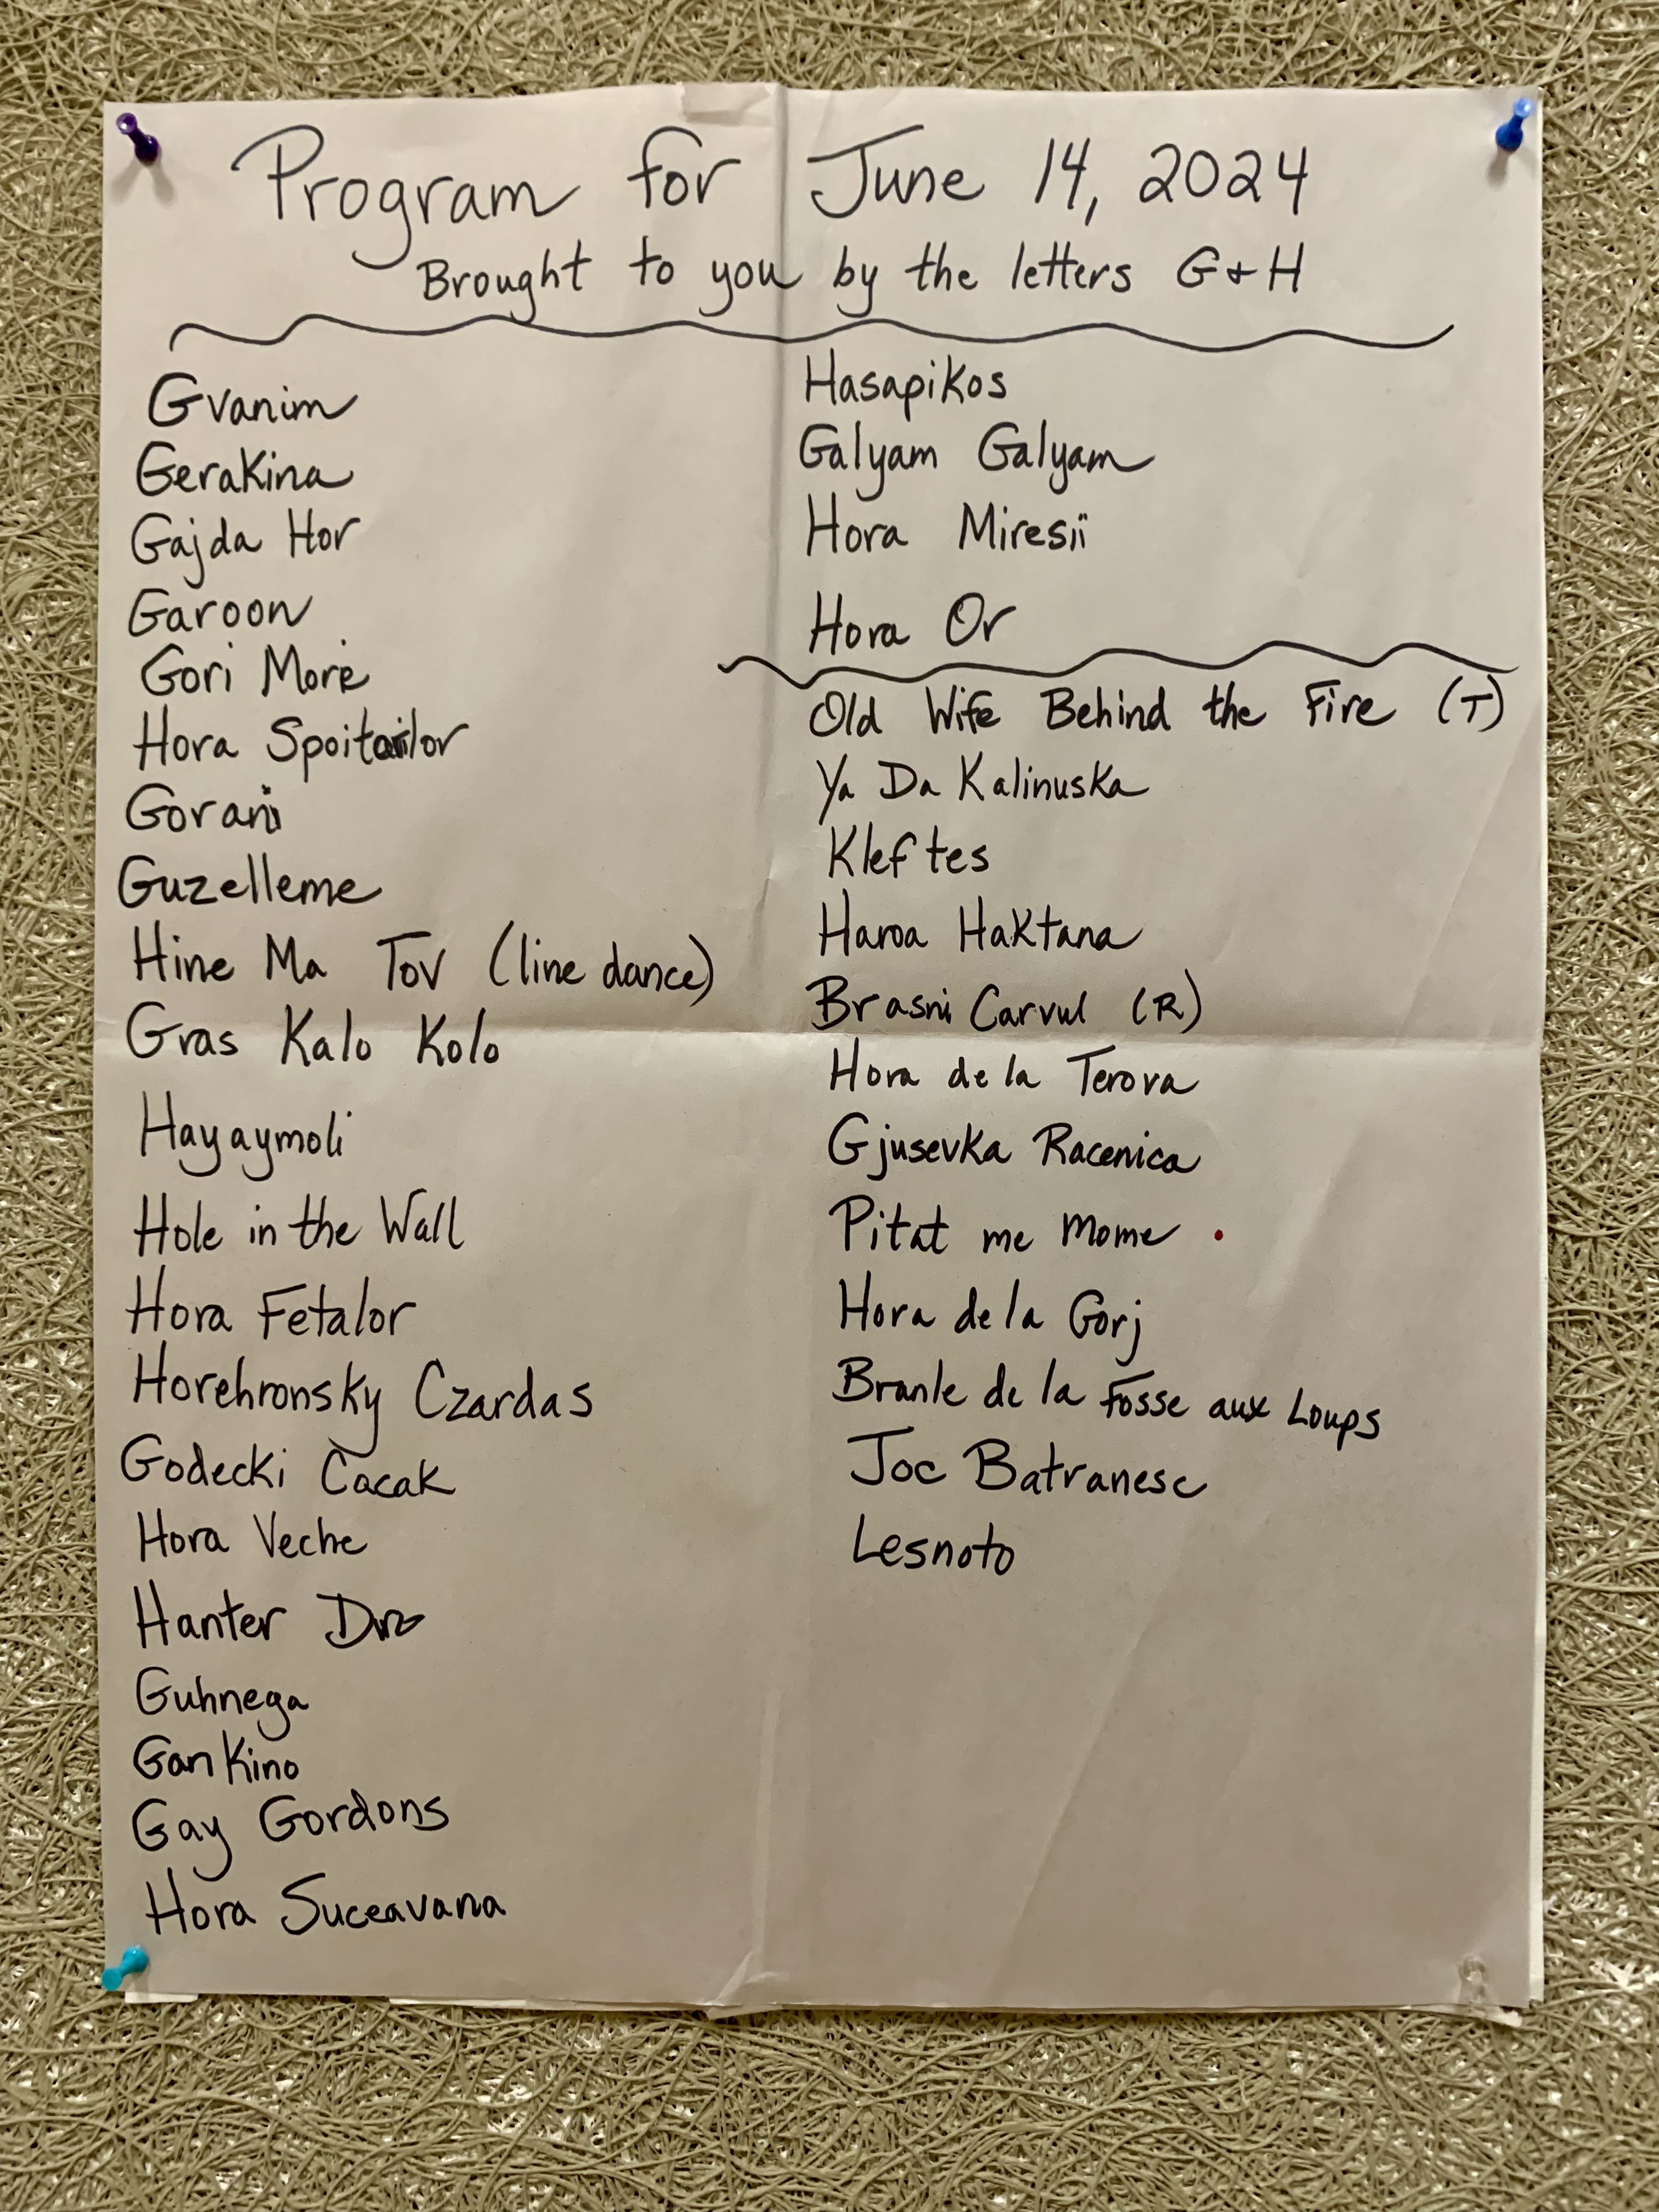 Program for June 14, 2024
Brought to you by the letters G & H
Gvanim
Gerakina
Gajda Hor
Garoon
Gori More
Hora Spoitorilor
Gorani
Guzelleme
Hine Ma Tov (line dance)
Gras Kalo Kolo
Hayaymoli
Hole in the Wall
Hora Fetalor
Horehronsky Czardas
Godecki Cacak
Hora Veche
Hanter Dro
Guhnega
Gankino
Gay Gordons
Hora Suceavana
Hasapikos
Galyam Galyam
Hora Miresii
Hora Or
Old Wife Behind the Fire (T)
Ya Da Kalinuska
Kleftes
Haroa Haktana
Brasni Carvul (R)
Hora de la Terova
Gjusevka Racenica
Pitat me Mome
Hora de la Gorj
Branle de la Fosse aux Loups
Joc Batranesc
Lesnoto